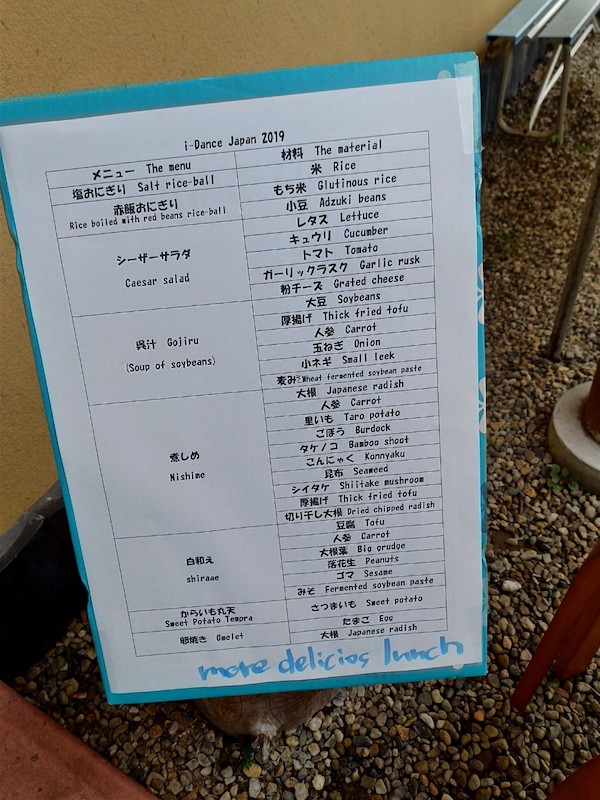 i-Dance Japan 2019
メニュー The menu
材料 The material
塩おにぎり Salt rice-ball
米 Rice
赤飯おにぎり
Rice boiled with red beans rice-ball
もち米 Glutinous rice
小豆 Adzuki beans
シーザーサラダ
Caesar salad
レタス Lettuce
キュウリ Cucumber
トマト Tomato
ガーリックラスク Garlic rusk
粉チーズ Grated cheese
呉汁 Gojiru
(Soup of soybeans)
大豆 Soybeans
厚揚げ Thick fried tofu
人参 Carrot
玉ねぎ Onion
小ネギ Small leek
麦みそ Wheat fermented soybean paste
煮しめ
Nishime
大根 Japanese radish
人参 Carrot
里いも Taro potato
ごぼう Burdock
タケノコ Bamboo shoot
こんにゃく Konnyaku
昆布 Seaweed
シイタケ Shiitake mushroom
厚揚げ Thick fried tofu
切り干し大根 Dried chipped radish
白和え
shiraae
豆腐 Tofu
人参 Carrot
大根葉 Big grudge
落花生 Peanuts
ゴマ Sesame
みそ Fermented soybean paste
からいも丸天
Sweet Potato Tempra
さつまいも Sweet potato
卵焼き Omelet
たまご Egg
大根 Japanese radish
more delicios lunch